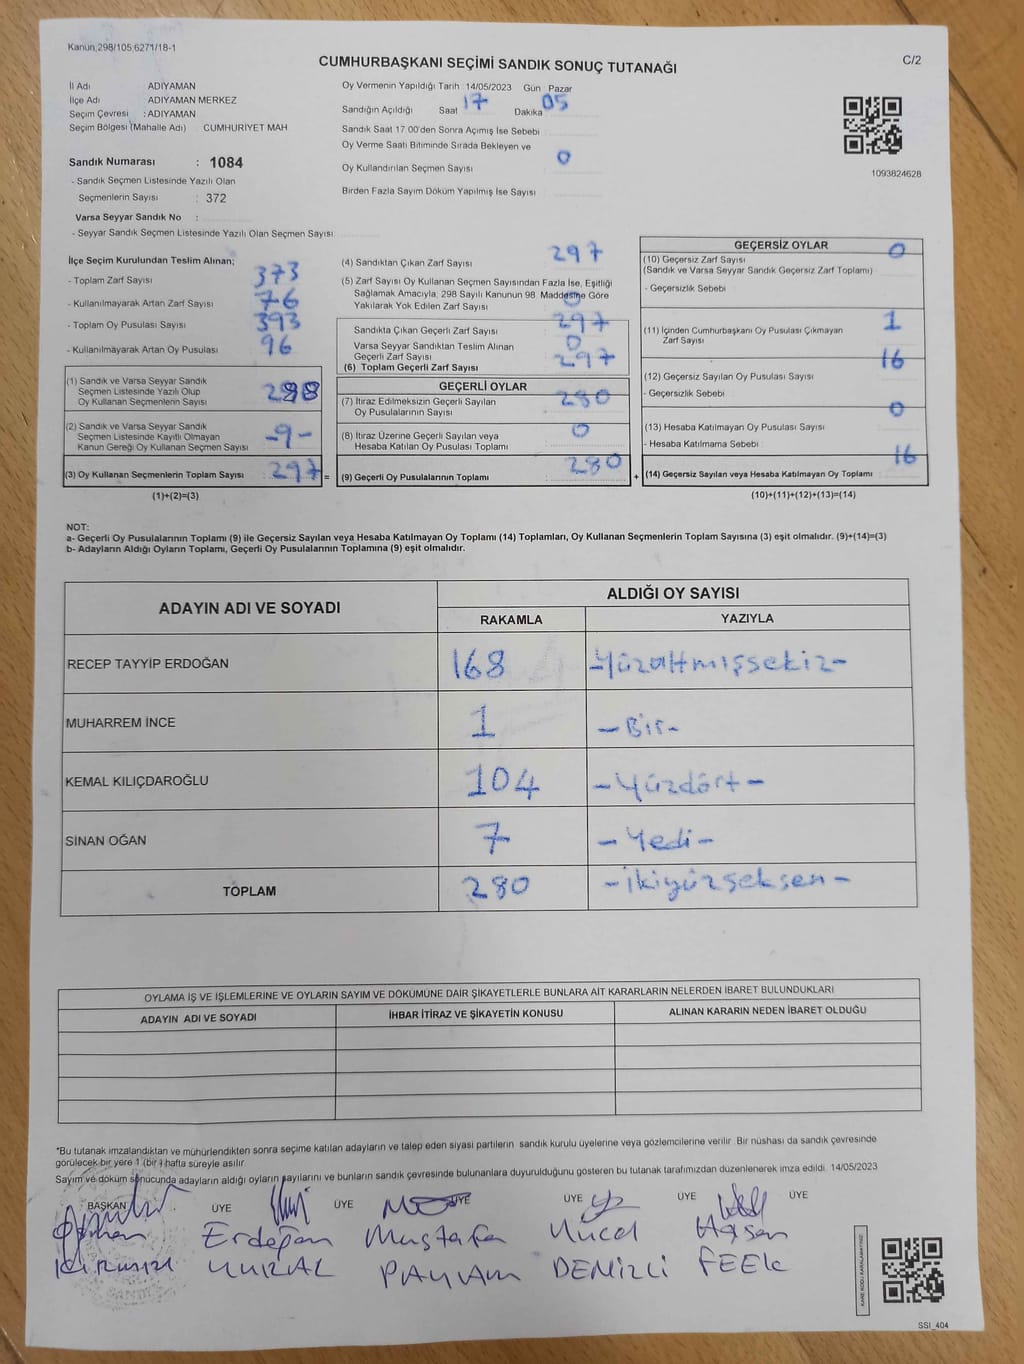 Kanun;298/105;6271/18-1
CUMHURBAŞKANI SEÇİMİ SANDIK SONUÇ TUTANAĞI
C/2
İl Adı ADIYAMAN
İlçe Adı ADIYAMAN MERKEZ
Seçim Çevresi : ADIYAMAN
Seçim Bölgesi (Mahalle Adı) CUMHURİYET MAH
Sandık Numarası : 1084
- Sandık Seçmen Listesinde Yazılı Olan
Seçmenlerin Sayısı : 372
Varsa Seyyar Sandık No :
- Seyyar Sandık Seçmen Listesinde Yazılı Olan Seçmen Sayısı
Oy Vermenin Yapıldığı Tarih 14/05/2023 Gün Pazar
Sandığın Açıldığı Saat 17 Dakika 05
Sandık Saat 17 00'den Sonra Açımış İse Sebebi
Oy Verme Saati Bitiminde Sırada Bekleyen ve
Oy Kullandırılan Seçmen Sayısı 0
Birden Fazla Sayım Döküm Yapılmış İse Sayısı
1093824628
İlçe Seçim Kurulundan Teslim Alınan;
- Toplam Zarf Sayısı 373
- Kullanılmayarak Artan Zarf Sayısı 76
- Toplam Oy Pusulası Sayısı 393
- Kullanılmayarak Artan Oy Pusulası 96
(1) Sandık ve Varsa Seyyar Sandık
Seçmen Listesinde Yazılı Olup
Oy Kullanan Seçmenlerin Sayısı 288
(2) Sandık ve Varsa Seyyar Sandık
Seçmen Listesinde Kayıtlı Olmayan
Kanun Gereği Oy Kullanan Seçmen Sayısı -9-
(3) Oy Kullanan Seçmenlerin Toplam Sayısı 297 =
(1)+(2)=(3)
(4) Sandıktan Çıkan Zarf Sayısı 297
(5) Zarf Sayısı Oy Kullanan Seçmen Sayısından Fazla İse, Eşitliği
Sağlamak Amacıyla, 298 Sayılı Kanunun 98 Maddesine Göre
Yakılarak Yok Edilen Zarf Sayısı 0
Sandıkta Çıkan Geçerli Zarf Sayısı 297
Varsa Seyyar Sandıktan Teslim Alınan
Geçerli Zarf Sayısı 0
(6) Toplam Geçerli Zarf Sayısı 297
GEÇERLİ OYLAR
(7) İtiraz Edilmeksizin Geçerli Sayılan
Oy Pusulalarının Sayısı 280
(8) İtiraz Üzerine Geçerli Sayılan veya
Hesaba Katılan Oy Pusulası Toplamı 0
(9) Geçerli Oy Pusulalarının Toplamı 280 +
GEÇERSİZ OYLAR
(10) Geçersiz Zarf Sayısı 0
(Sandık ve Varsa Seyyar Sandık Geçersiz Zarf Toplamı)
- Geçersizlik Sebebi
(11) İçinden Cumhurbaşkanı Oy Pusulası Çıkmayan
Zarf Sayısı 1
(12) Geçersiz Sayılan Oy Pusulası Sayısı 16
- Geçersizlik Sebebi
(13) Hesaba Katılmayan Oy Pusulası Sayısı 0
- Hesaba Katılmama Sebebi
(14) Geçersiz Sayılan veya Hesaba Katılmayan Oy Toplamı 16
(10)+(11)+(12)+(13)=(14)
NOT:
a- Geçerli Oy Pusulalarının Toplamı (9) ile Geçersiz Sayılan veya Hesaba Katılmayan Oy Toplamı (14) Toplamları, Oy Kullanan Seçmenlerin Toplam Sayısına (3) eşit olmalıdır. (9)+(14)=(3)
b- Adayların Aldığı Oyların Toplamı, Geçerli Oy Pusulalarının Toplamına (9) eşit olmalıdır.
ADAYIN ADI VE SOYADI
ALDIĞI OY SAYISI
RAKAMLA YAZIYLA
RECEP TAYYİP ERDOĞAN 168 -Yüzaltmışsekiz-
MUHARREM İNCE 1 -Bir-
KEMAL KILIÇDAROĞLU 104 -Yüzdört-
SİNAN OĞAN 7 -Yedi-
TOPLAM 280 -ikiyüzseksen-
OYLAMA İŞ VE İŞLEMLERİNE VE OYLARIN SAYIM VE DÖKÜMÜNE DAİR ŞİKAYETLERLE BUNLARA AİT KARARLARIN NELERDEN İBARET BULUNDUKLARI
ADAYIN ADI VE SOYADI İHBAR İTİRAZ VE ŞİKAYETİN KONUSU ALINAN KARARIN NEDEN İBARET OLDUĞU
*Bu tutanak imzalandıktan ve mühürlendikten sonra seçime katılan adayların ve talep eden siyasi partilerin sandık kurulu üyelerine veya gözlemcilerine verilir Bir nüshası da sandık çevresinde
görülecek bir yere 1 (bir) hafta süreyle asılır
Sayım ve döküm sonucunda adayların aldığı oyların sayılarını ve bunların sandık çevresinde bulunanlara duyurulduğunu gösteren bu tutanak tarafımızdan düzenlenerek imza edildi. 14/05/2023
BAŞKAN ÜYE ÜYE ÜYE ÜYE ÜYE ÜYE
Erdoğan Mustafa Yücel Hasan
DENİZLİ
KARE KODU KARALAMAYINIZ
SSI_404